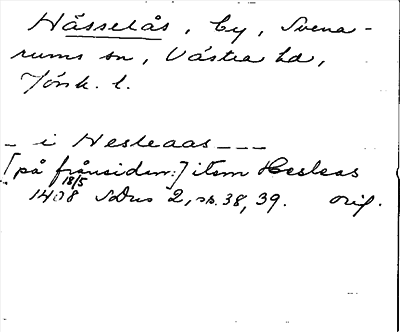 Hässelås, by, Svena-
rums sn, Västra hd,
Jönk. l.
_ i Hesleaas ___
[på frånsidan:] item Hesleas
18/5
1408 SDns 2, sp. 38, 39. orig.